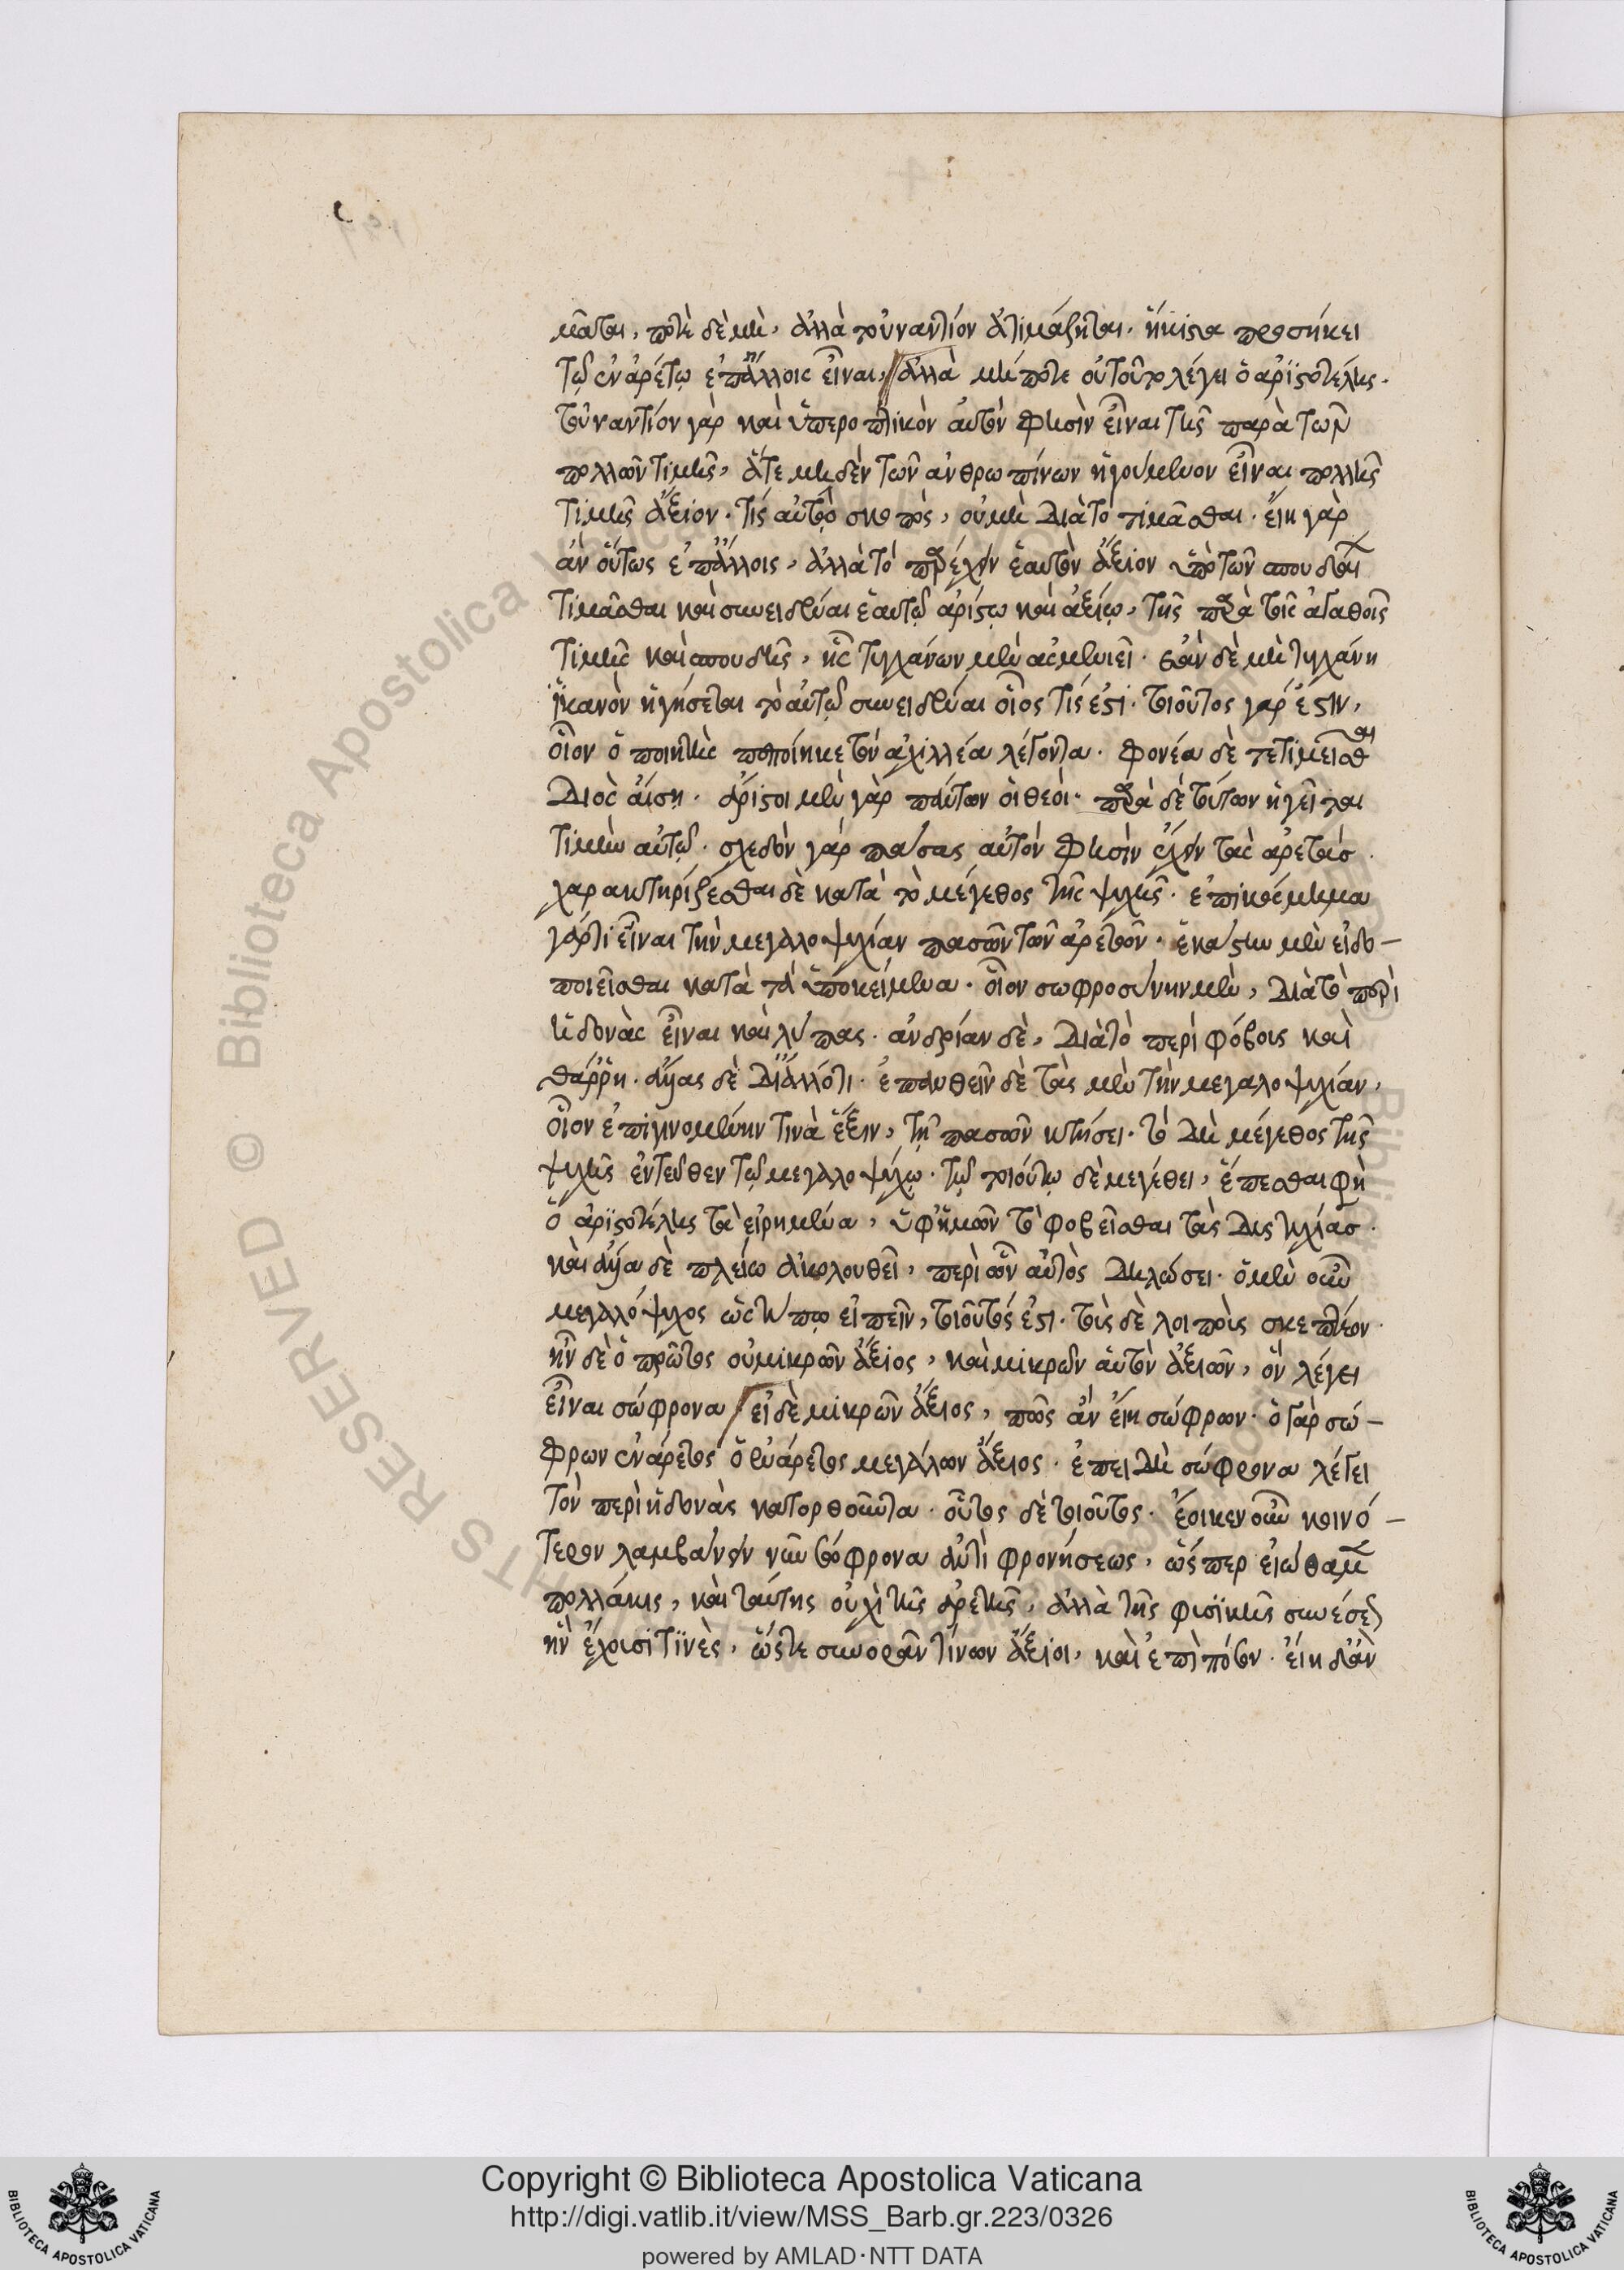 μᾶται, ποτὲ δὲ μὴ, ἀλλὰ τοὐναντίον ἀτιμάζηται. ἥκιστα προσήκει
τῷ ἐναρέτῳ ἐπ' ἄλλοις εἶναι, ἀλλὰ μήποτε οὐ τοῦτο λέγει ὁ ἀριστοτέλης.
τοὐναντίον γὰρ καὶ ὑπεροπτικὸν αὐτὸν φησὶν εἶναι τῆς παρὰ τῶν
πολλῶν τιμῆς, ἅτε μηδὲν τῶν ἀνθρωπίνων ἡγούμενον εἶναι πολλῆς
τιμῆς ἄξιον. τίς αὐτῷ σκοπὸς, οὐ μὴ διὰ τὸ τιμᾶσθαι. εἴη γὰρ
ἂν οὕτως ἐπ' ἄλλοις, ἀλλὰ τὸ παρέχειν ἑαυτὸν ἄξιον ὑπὸ τῶν σπουδαί
τιμᾶσθαι καὶ συνειδέναι ἑαυτῷ ἀρίστῳ καὶ ἀξίῳ, τῆς παρὰ τοῖς ἀγαθοῖς
τιμῆς καὶ σπουδῆς, ἧς τυγχάνων μὲν ἀσμενιεῖ. ἐὰν δὲ μὴ τυγχάνη
ἱκανὸν ἡγήσεται τὸ αὑτῷ συνειδέναι οἷος τίς ἐστι. τοιοῦτος γάρ ἐστιν,
οἷον ὁ ποιητὴς πεποίηκε τὸν ἀχιλλέα λέγοντα. φονέα δὲ τετιμεῖσθαι
Διὸς αἴση. ἄριστοι μὲν γὰρ πάντων οἱ θεοί. παρὰ δὲ τούτων ἡγεῖται
τιμὴν αὑτῷ. σχεδὸν γὰρ πάσας αὐτόν φησὶν ἔχειν τὰς ἀρετάσ.
χαρακτηρίζεσθαι δὲ κατὰ τὸ μέγεθος τῆς ψυχῆς. ἐπικόσμημα
γάρ τι εἶναι τὴν μεγαλοψυχίαν πασῶν τῶν ἀρετῶν. ἑκάστην μὲν εἰδο–
ποιεῖσθαι κατὰ τὰ ὑποκείμενα. οἷον σωφροσύνην μὲν, διὰ τὸ περὶ
ἡδονὰς εἶναι καὶ λύπας. ἀνδρίαν δὲ, διὰ τὸ περὶ φόβους καὶ
θάρρη. ἄλλας δὲ δι' ἄλλότι. ἐπανθεῖν δὲ τὰς μὲν τὴν μεγαλοψυχίαν,
οἷον ἐπιγινομένην τινὰ ἕξιν, τῇ πασῶν κτήσει. τὸ δὴ μέγεθος τῆς
ψυχῆς ἐντεῦθεν τῷ μεγαλοψύχῳ. τῷ τοιούτῳ δὲ μεγέθει, ἕπεσθαι φη
ὁ ἀριστοτέλης τὰ εἰρημένα, ὑφ' ἡμῶν τὸ φοβεῖσθαι τὰς δυστυχίασ.
καὶ ἄλλα δὲ πλείω ἀκολουθεῖ, περὶ ὧν αὐτὸς δηλώσει. ὁ μὲν οὖν
μεγαλόψυχος ὡς τύπῳ εἰπεῖν, τοιοῦτός ἐστι. τοὺς δὲ λοιποὺς σκεπτέον.
ἦν δὲ ὁ πρῶτος οὐ μικρῶν ἄξιος, καὶ μικρῶν αὑτὸν ἀξιῶν, ὃν λέγει
εἶναι σώφρονα εἰ δὲ μικρῶν ἄξιος, πῶς ἂν εἴη σώφρων. ὁ γὰρ σώ–
φρων ἐνάρετος ὁ ἐνάρετος μεγάλων ἄξιος. ἐπεὶ δὴ σώφρονα λέγει
τὸν περὶ ἡδονὰς κατορθοῦντα. οὗτος δὲ τοιοῦτος. ἔοικεν οὖν κοινό–
τερον λαμβάνειν νῦν σόφρονα ἀντὶ φρονήσεως, ὥσπερ εἰώθαμεν
πολλάκις, καὶ ταύτης οὐχὶ τῆς ἀρετῆς, ἀλλὰ τῆς φυσϊκῆς συνέσεως
ἣν ἔχουσι τινὲς, ὥστε συνορᾶν τίνων ἄξιοι, καὶ ἐπὶ πόσον. εἴη δ' ἂν
Copyright © Biblioteca Apostolica Vaticana
http://digi.vatlib.it/view/MSS_Barb.gr.223/0326
powered by AMLAD·NTT DATA